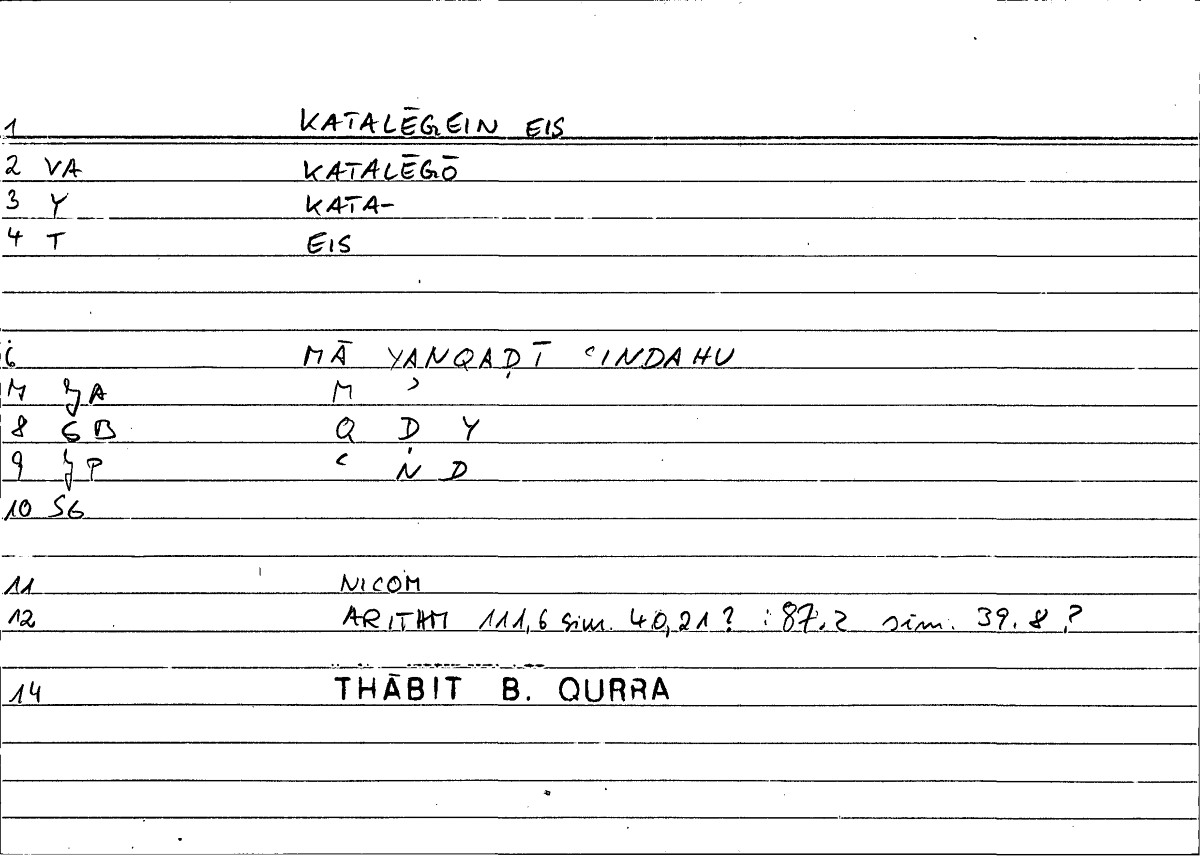 1 KATALĒGEIN EIS
2 VA KATALĒGŌ
3 Y KATA-
4 T EIS
6 MĀ YANQAḌĪ ʿINDAHU
M ʾ
8 GB Q Ḍ Y
9 ʿ N D
10 SG
11 NICOM
12 ARITHM 111,6 sim. 40,21? : 87.2 sim. 39.8?
14 THĀBIT B. QURRA